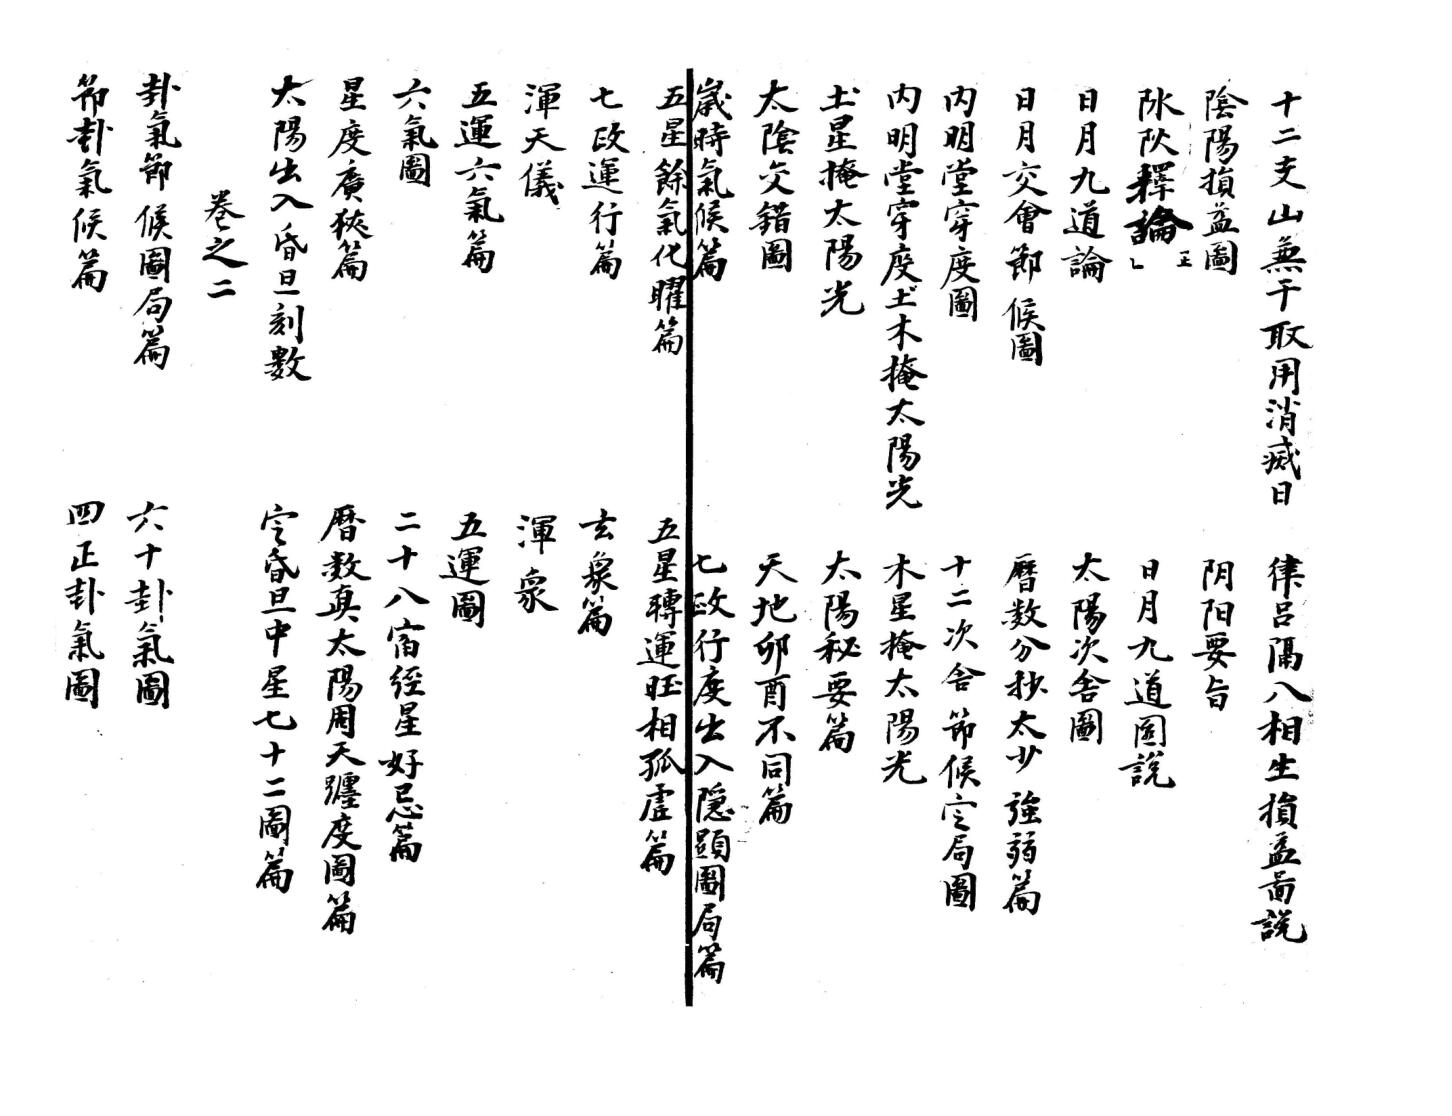 十二支山無干取用消滅日
律呂隔八相生損益啚説
陰陽損益圖
阴阳要旨
阥阦釋論
日月九道圖説
日月九道論
太陽次舍圖
日月交會節候圖
曆数分秒太少強弱篇
内明堂穿度圖
十二次舍節候定局圖
内明堂穿度土木掩太陽光
木星掩太陽光
土星掩太陽光
太陽秘要篇
太陰交錯圖
天地卯酉不同篇
歲時氣候篇
七政行度出入隱顕圖局篇
五星餘氣化曜篇
五星轉運旺相孤虛篇
七政運行篇
玄象篇
渾天儀
渾象
五運六氣篇
五運圖
六氣圖
二十八宿經星好忌篇
星度廣狹篇
曆数真太陽周天躔度圖篇
太陽出入昏旦刻數
定昏旦中星七十二圖篇
卷之二
卦氣節候圖局篇
六十卦氣圖
節卦氣候篇
四正卦氣圖